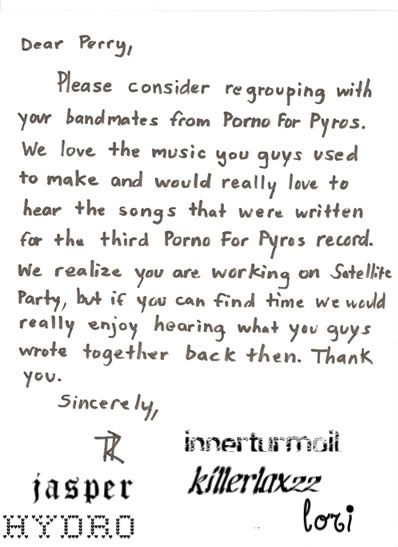 Dear Perry,
Please consider regrouping with
your bandmates from Porno For Pyros.
We love the music you guys used
to make and would really love to
hear the songs that were written
for the third Porno For Pyros record.
We realize you are working on Satellite
Party, but if you can find time we would
really enjoy hearing what you guys
wrote together back then. Thank
you.
Sincerely,
innerturmoil
jasper
killerlaxzz
HYDRO
lori